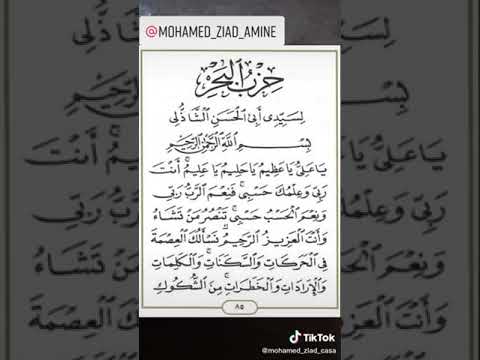 @MOHAMED_ZIAD_AMINE
حِزْبُ الْبَحْرِ
لِسَيِّدِى أَبِى الْحَسَنِ الشَّاذُلِى
بِسْمِ اللَّهِ الرَّحْمَٰنِ الرَّحِيمِ
يَاعَلِىُّ يَاعَظِيمُ يَاحَلِيمُ يَا عَلِيمُ أَنْتَ
رَبِّى وَعِلْمُكَ حَسْبِى فَنِعْمَ الرَّبُّ رَبِّى
وَنِعْمَ الْحَسْبُ حَسْبِى تَنْصُرُ مَنْ تَشَاءُ
وَأَنْتَ الْعَزِيزُ الرَّحِيمُ نَسْأَلُكَ الْعِصْمَةَ
فِى الْحَرَكَاتِ وَالسَّكَنَاتِ وَالْكَلِمَاتِ
وَالْإِرَادَاتِ وَالْخَطَرَاتِ مِنَ الشُّكُوكِ
٨٥
TikTok
@mohamed_ziad_casa